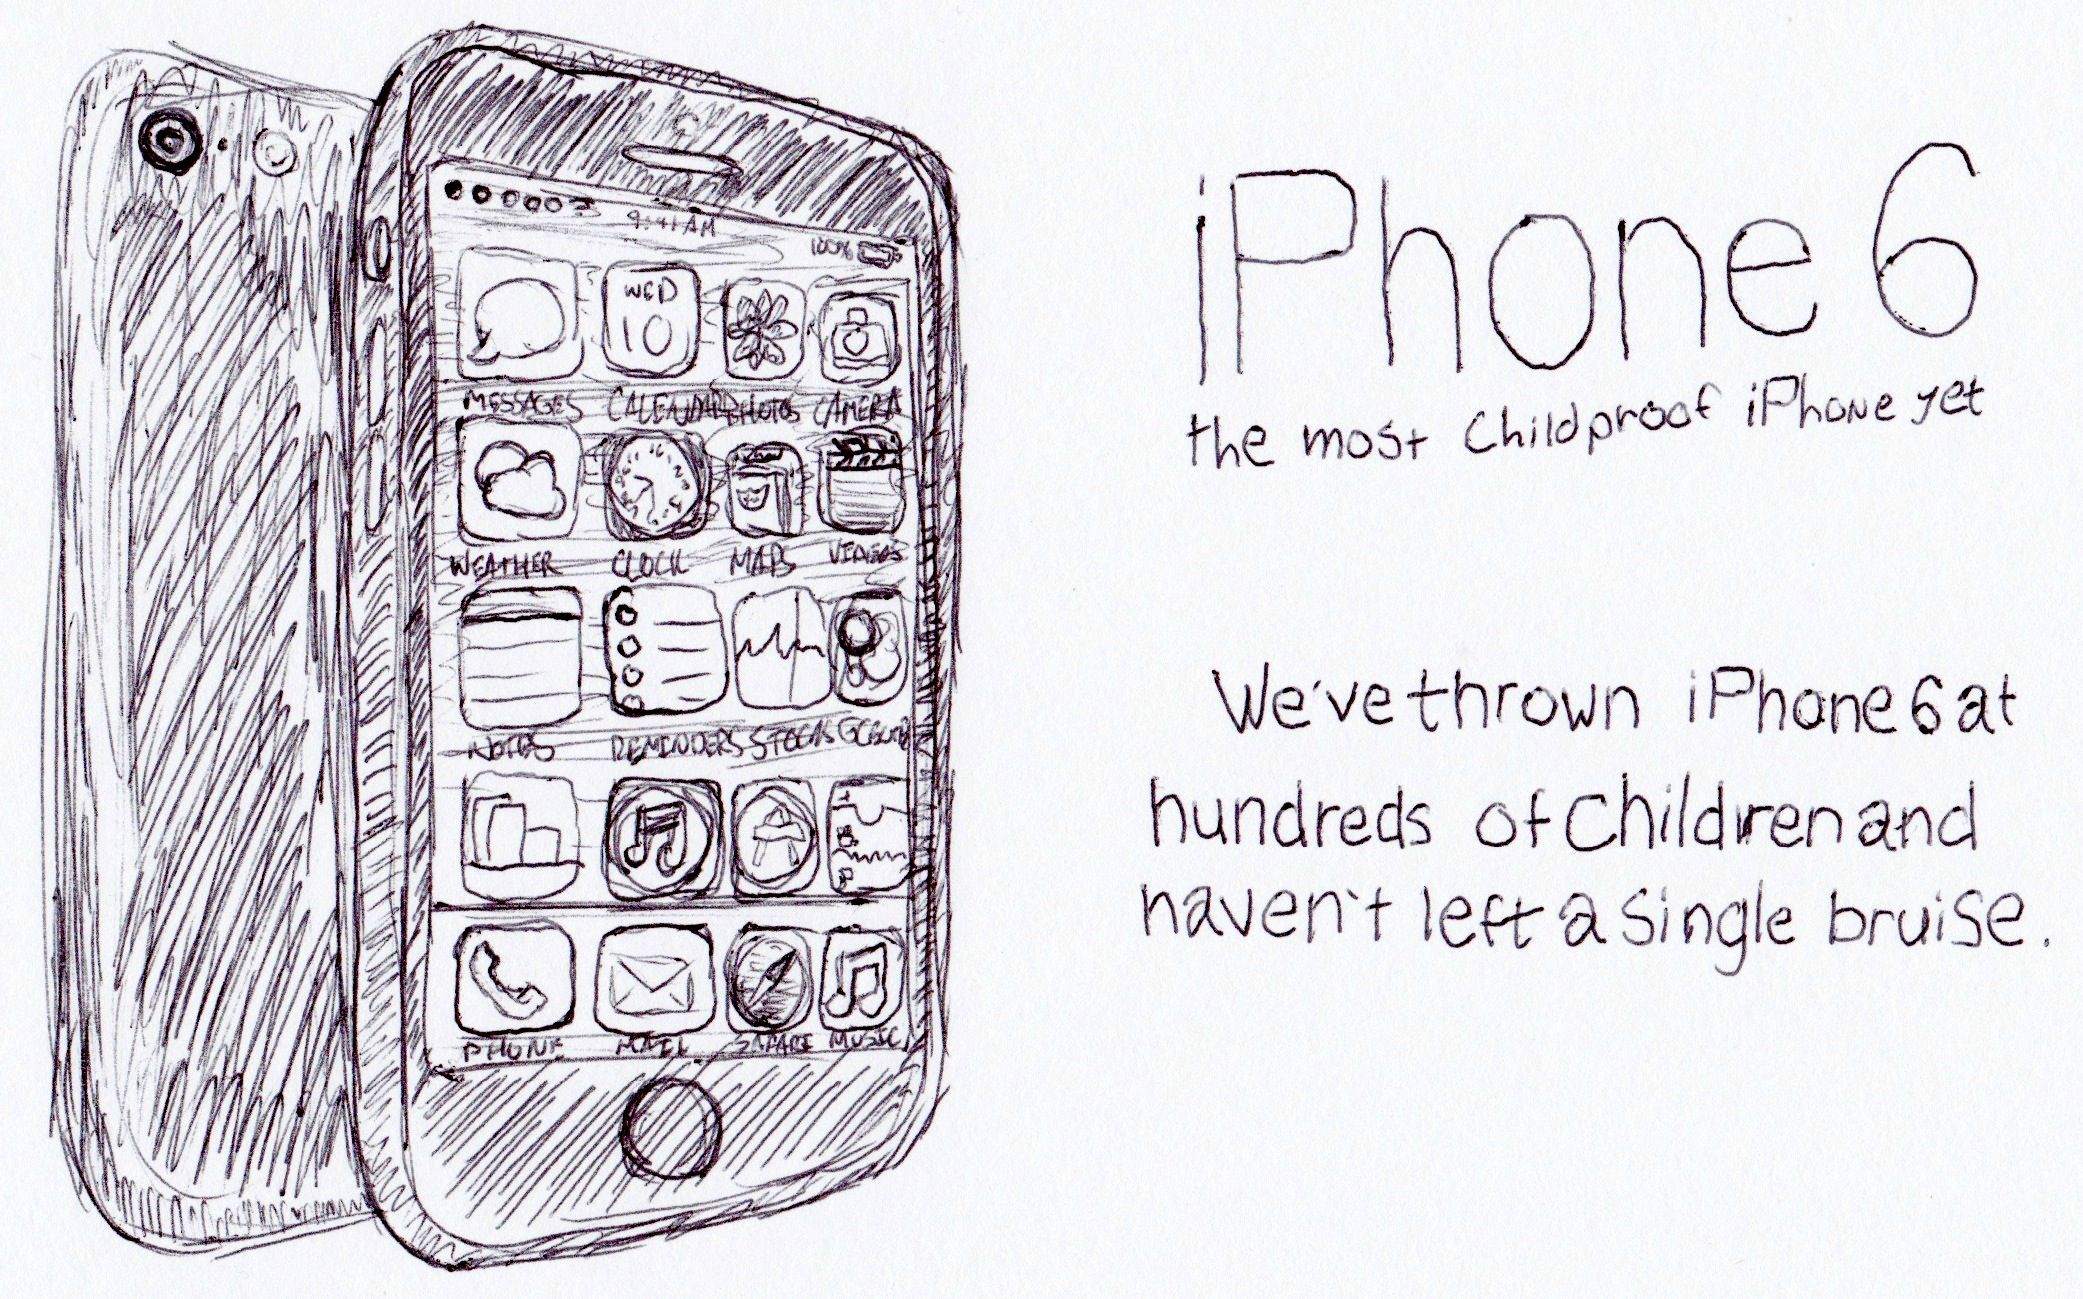 9:41 AM
100%
WED
10
MESSAGES CALENDAR PHOTOS CAMERA
WEATHER CLOCK MAPS VIDEOS
NOTES REMINDERS STOCKS
PHONE MAIL SAFARI MUSIC
iPhone 6
the most childproof iPhone yet
We've thrown iPhone 6 at
hundreds of children and
haven't left a single bruise.